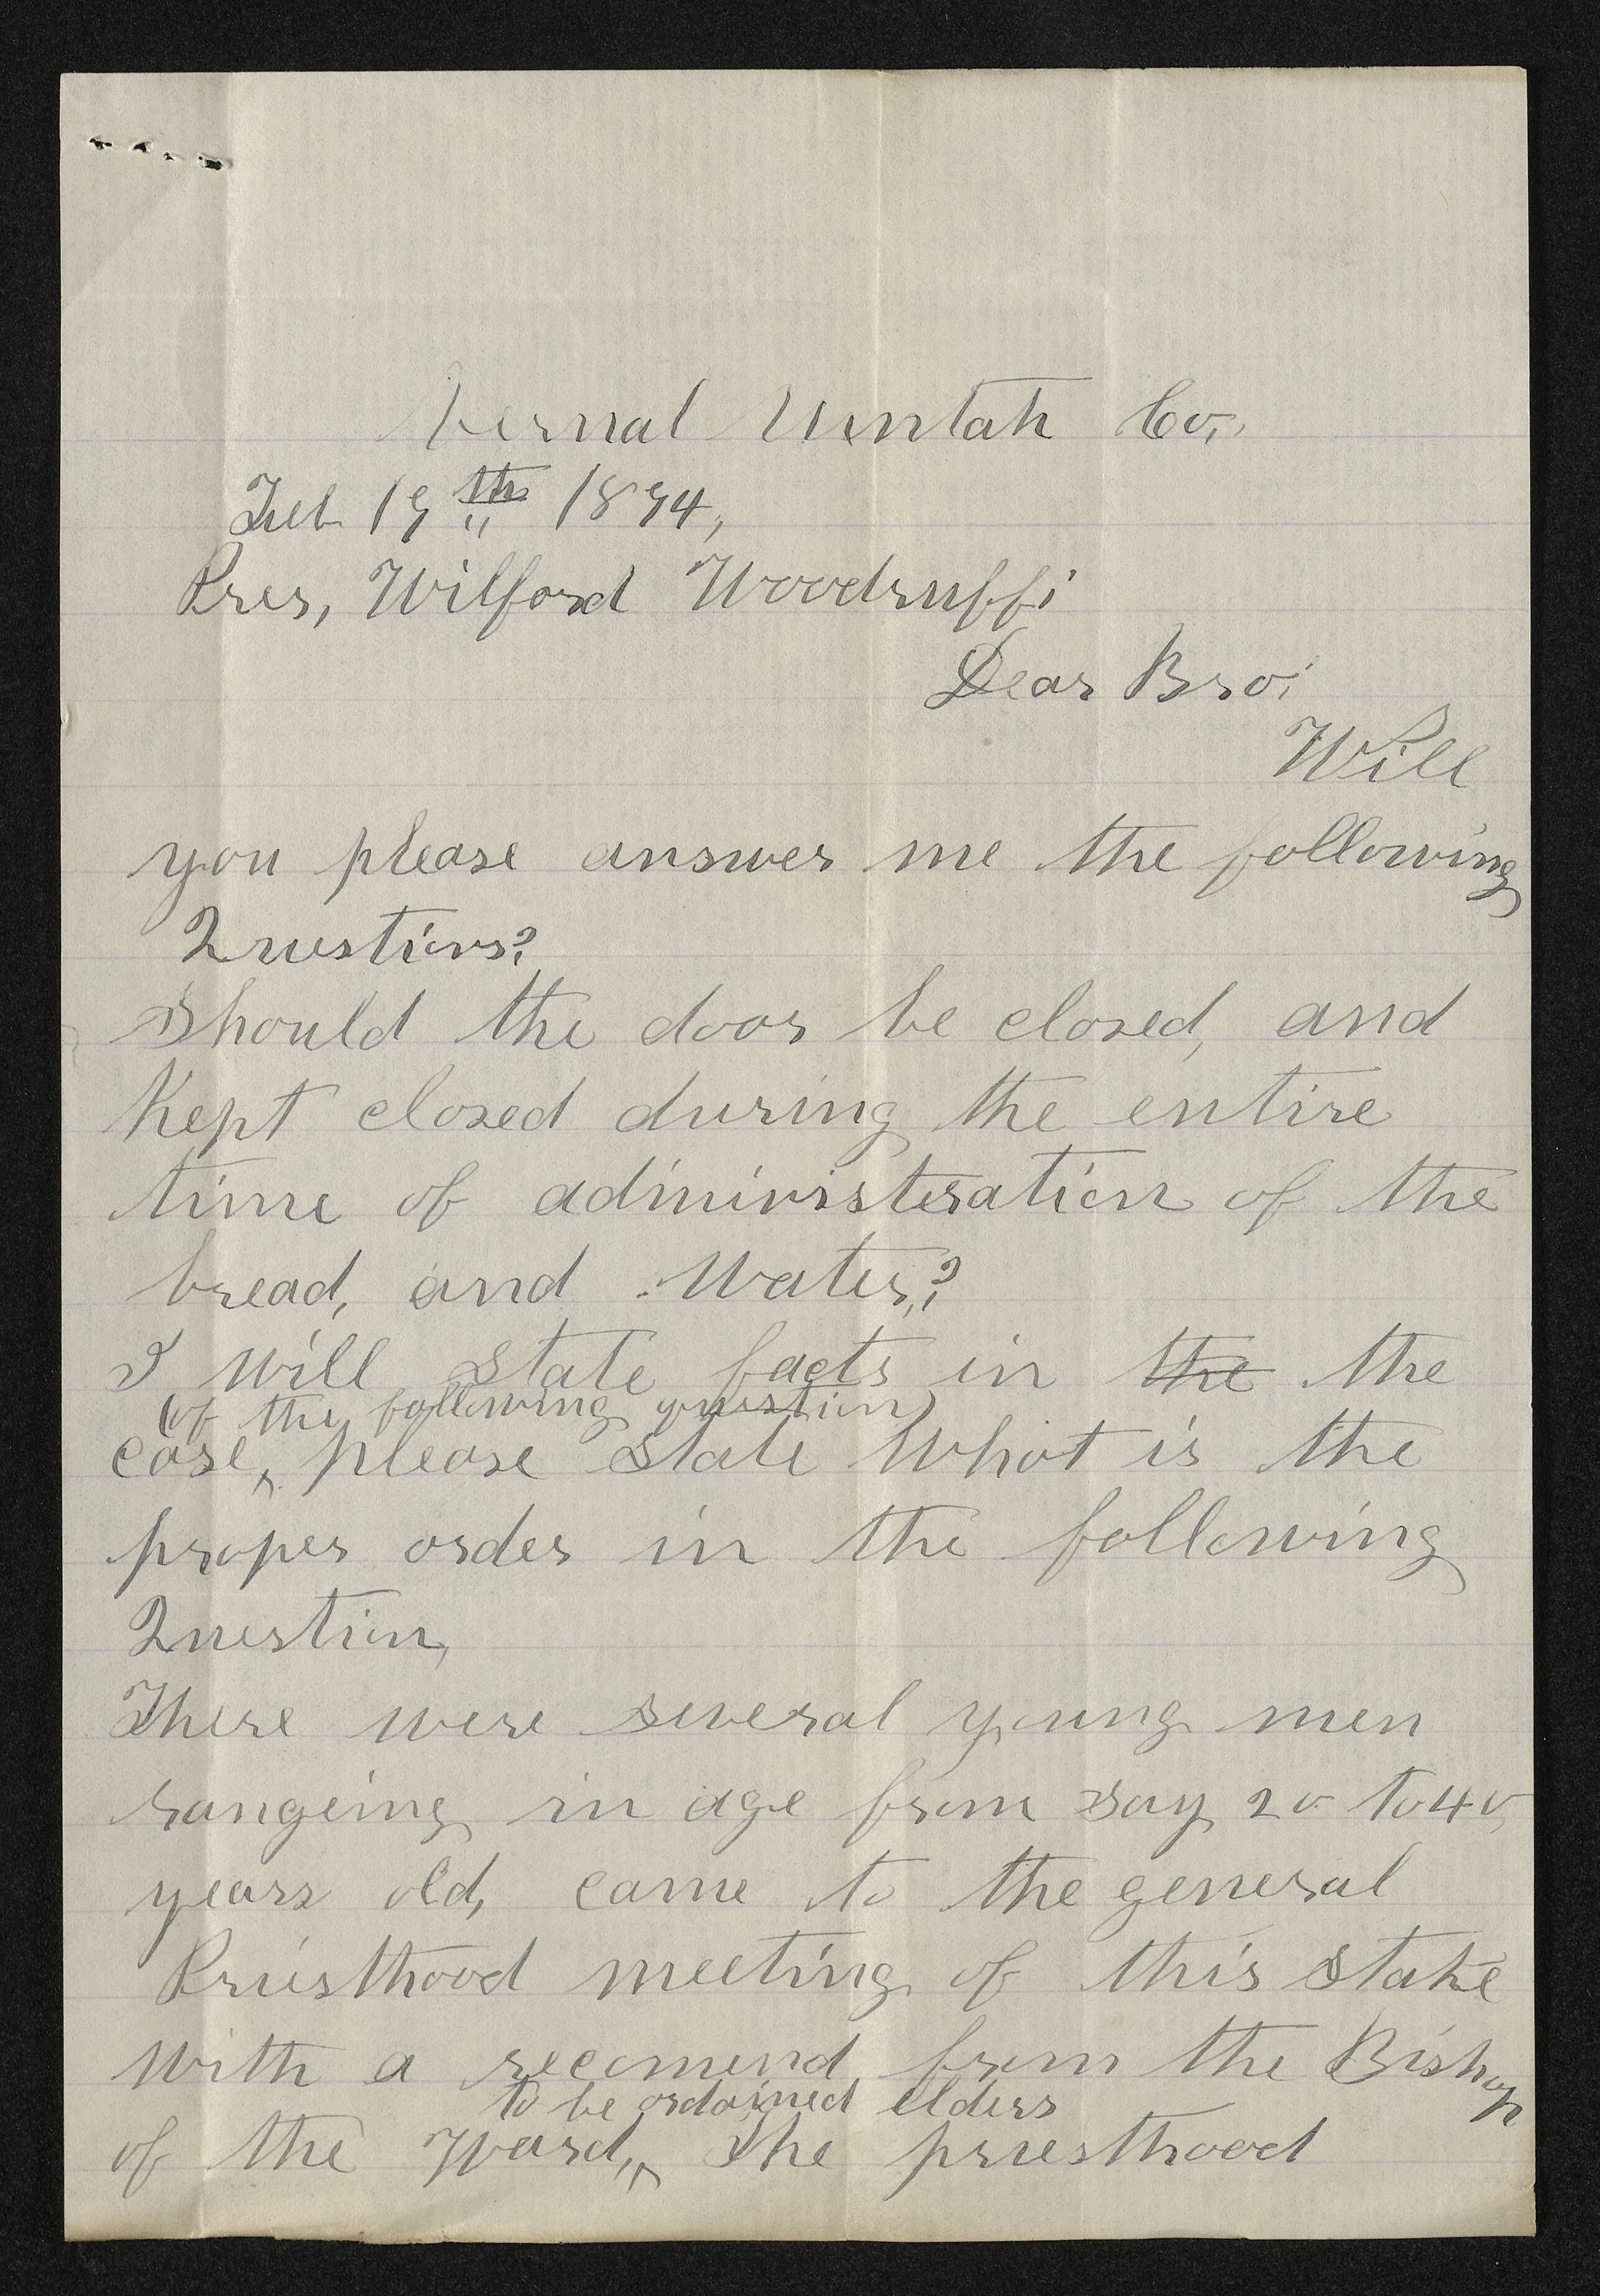 Vernal Uintah Co.,
Feb 19th 1894,
Pres, Wilford Woodruff;
Dear Bro;
Will
you please answer me the following
Questions?
Should the door be closed, and
Kept closed during the entire
time of administeration of the
bread, and Water,?
I will state facts in the the
(of the following question)
case, please state what is the
proper order in the following
Question,
There were several young men
rangeing in age from say 20 to 40,
years old, came to the general
Priesthood meeting of this stake
with a recomend from the Bishop
to be ordained elders
of the Ward, The priesthood